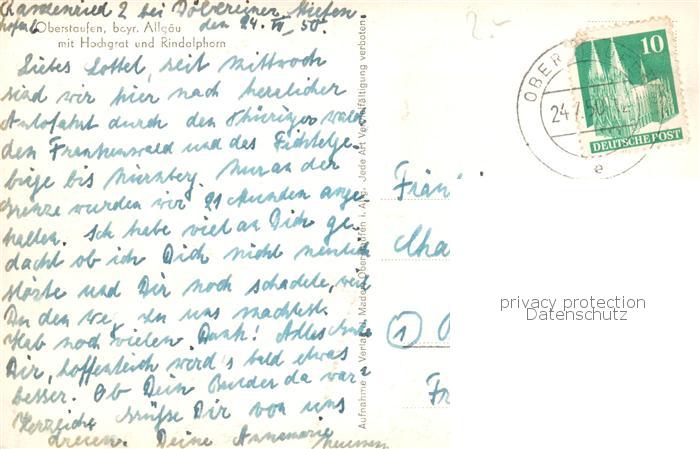 bei Döbereiner, Kiefen
hofen
den 24. VII. 50.
Oberstaufen, bayr. Allgäu
mit Hochgrat und Rindalphorn
Liebes Lottel, seit Mittwoch
sind wir hier nach herrlicher
Autofahrt durch den Thüringer Wald
den Frankenwald und das Fichtelge-
birge bis Nürnberg. Nur an der
Grenze wurden wir 21 Stunden ange
halten. Ich habe viel an Dich ge
dacht ob ich Dich nicht
störte und Dir noch schadete, weil
Du den Weg zu uns machtest.
Hab noch vielen Dank! Alles Gute
Dir, hoffentlich wird's bald etwas
besser. Ob Dein Bruder da war?
Herzliche Grüße Dir von uns
dreien. Deine Annemarie
Aufnahme u. Verlag H. Mader, Oberstaufen i. Allg. Jede Art Vervielfältigung verboten
2.-
OBER
24.7.50
e
10
DEUTSCHE POST
Frän
Cha
(1)
Fr
privacy protection
Datenschutz